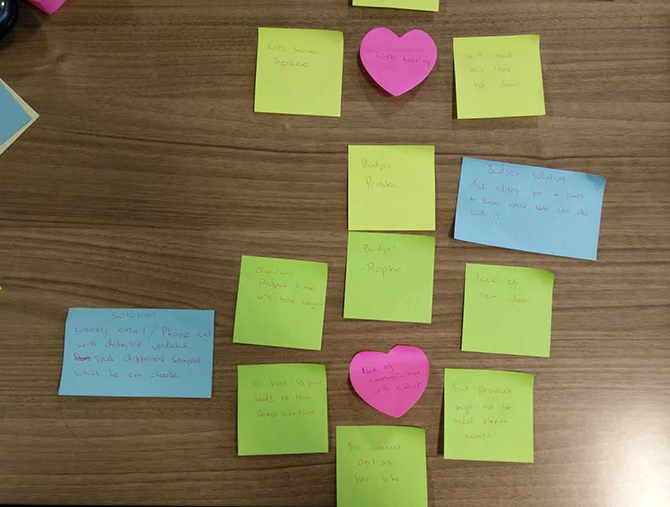 Web Server
Space
Web hosting
will need
for small
Budget
Problem
Budget Solution
Ask client for a limit
to know what we can do
with it.
Budget
Problem
Overrun
Project time
will take longer
lack of
new ideas
Solution
weekly email / Phone call
with detailed updates.
plus different samples
which he can choose.
lack of
communication
with client
No face-to-face
leads to less
communication
End product
might not be
what client
wants
No content
options
for site